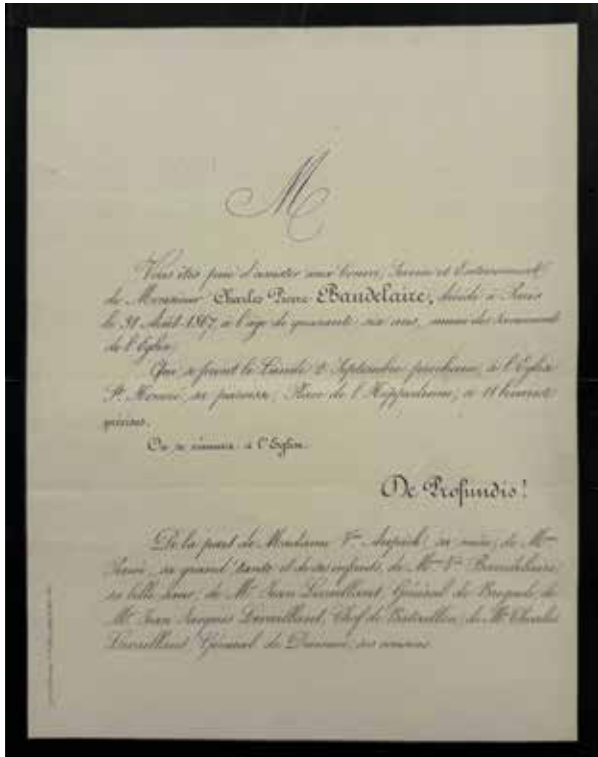 M
Vous êtes prié d'assister aux Convoi, Service et Enterrement
de Monsieur Charles Pierre Baudelaire, décédé à Paris
le 31 Août 1867, à l'âge de quarante six ans, muni des sacrements
de l'Eglise;
Qui se feront le Lundi 2 Septembre prochain, à l'Eglise
St Honoré, sa paroisse, Place de l'Hippodrome, à 11 heures
précises.
On se réunira à l'Eglise.
De Profundis!
De la part de Madame Vve Aupick, sa mère, de Mme
sa grand'tante et de ses enfants, de Mme Vve Baudelaire,
sa belle sœur, de Mr Jean Levaillant, Général de Brigade, de
Mr Jean Jacques Levaillant, Chef de Bataillon, de Mr Charles
Levaillant, Général de Division, ses cousins.